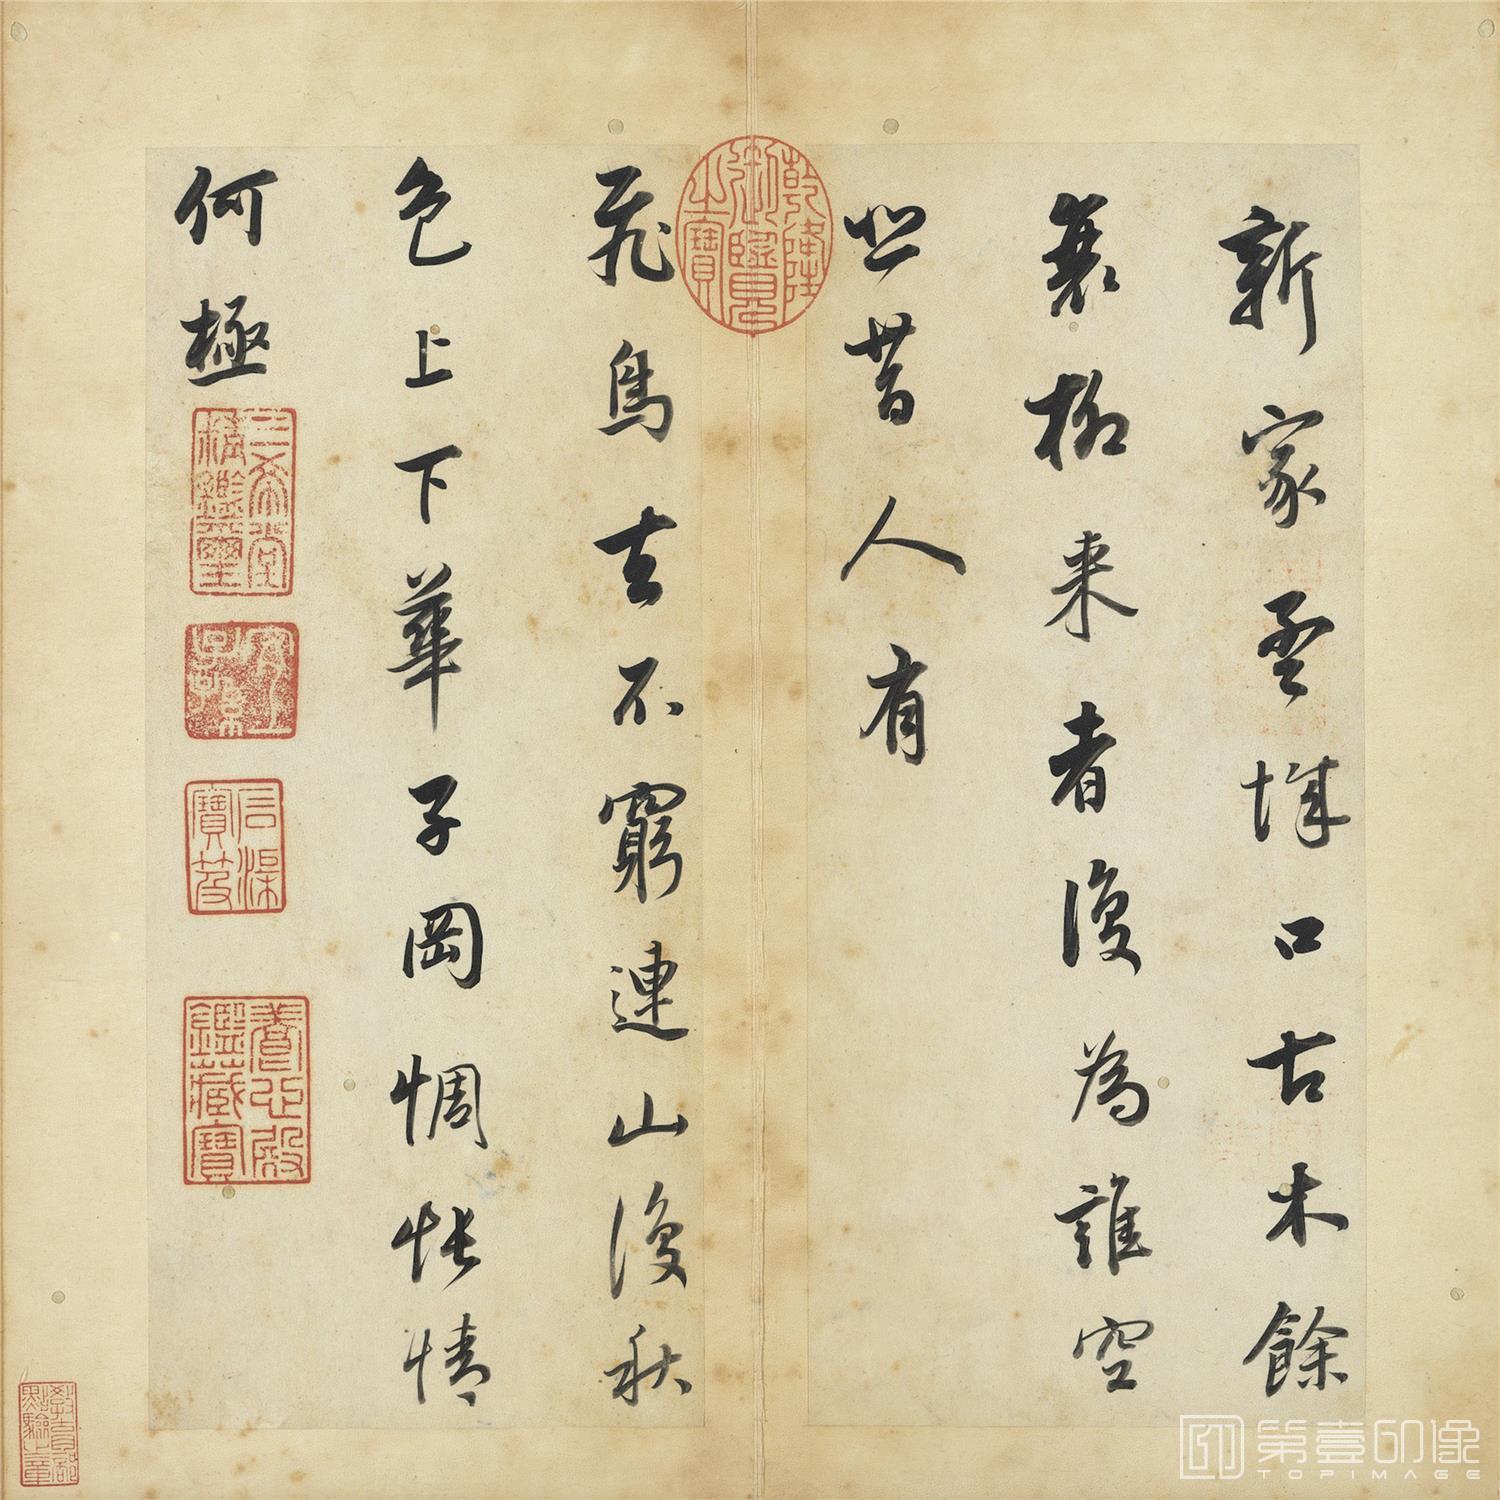 新家孟城口古木餘
衰柳来者復為誰空
悲昔人有
飛鳥去不窮連山復秋
色上下華子岡惆悵情
何極
乾隆御覽之寶
三希堂精鑑璽
石渠寶笈
養心殿鑑藏寶
教育部點驗之章
第壹印像
TOPIMAGE